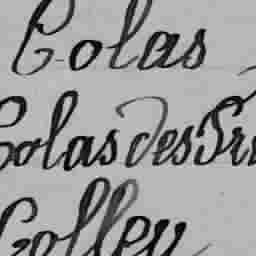 Colas
Colas des Fr
Colley